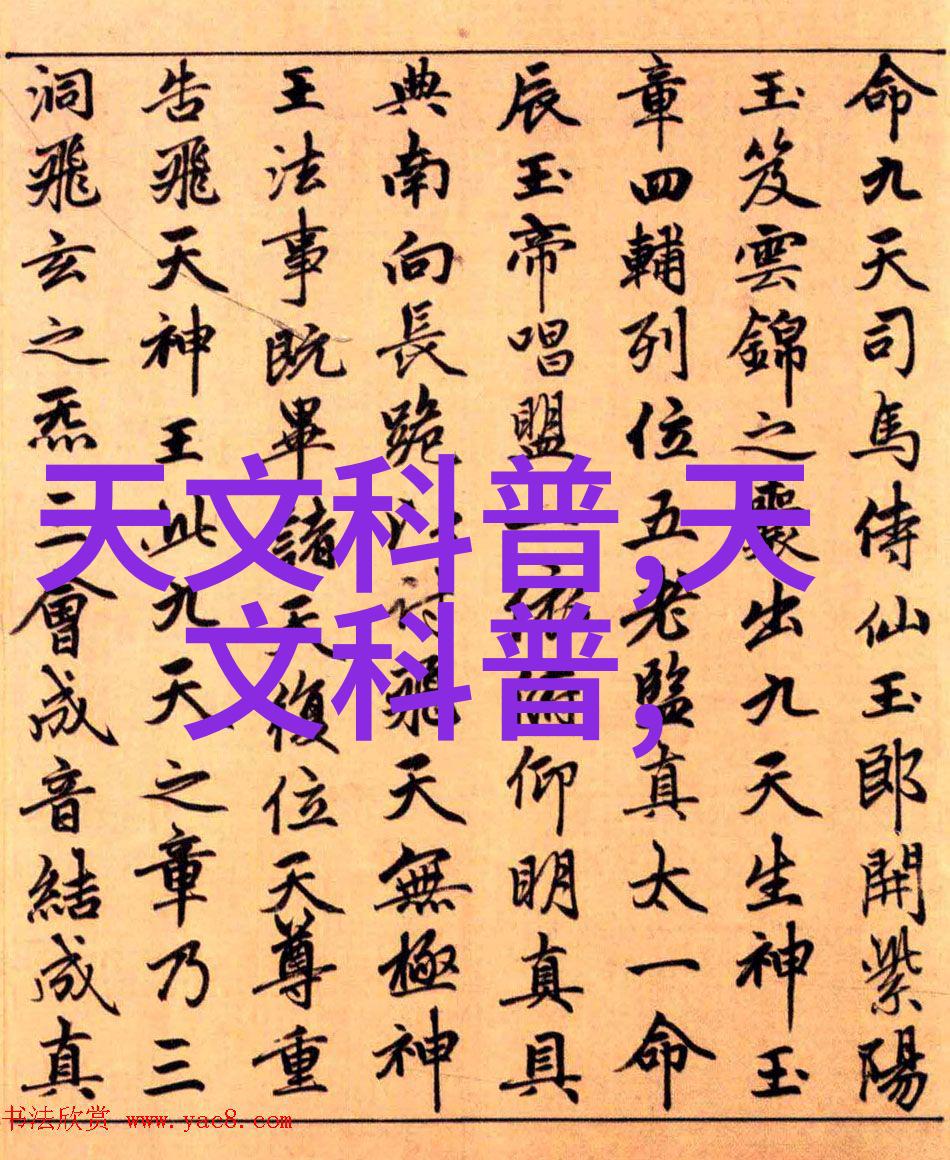 命九天司馬侍仙玉郎開紫陽
玉笈雲錦之囊出九天生神玉
章四輔列位五老監真太一命
辰玉帝唱盟仰明真具
典南向長跪飛天無極神
王法事既畢諸天復位天尊重
告飛天神王此九天之章乃三
洞飛玄之炁三會成音結成真
天文科普,天
文科普,
书法欣赏 www.yac8.com